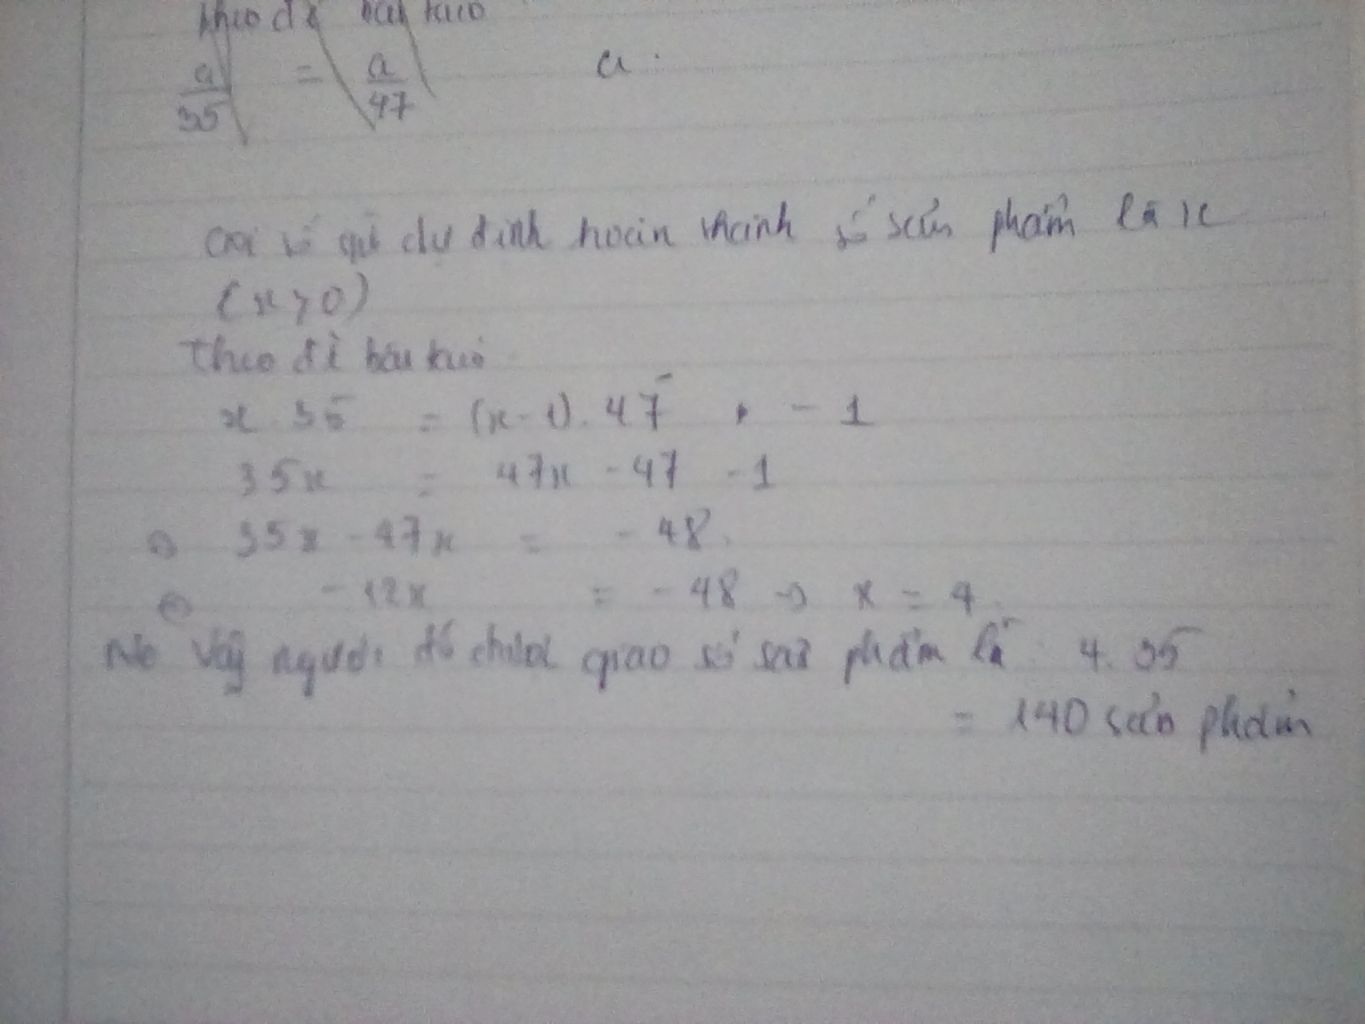 theo đề
a/35 = a/47 a
giờ dự định hoàn thành số sản phẩm là x
(x > 0)
Theo đề bài
x. 35 = (x-1). 47 - 1
35x = 47x - 47 - 1
35x - 47x = - 48
- 12x = - 48 => x = 4
Vậy người đó được giao số sản phẩm là 4. 35
= 140 sản phẩm